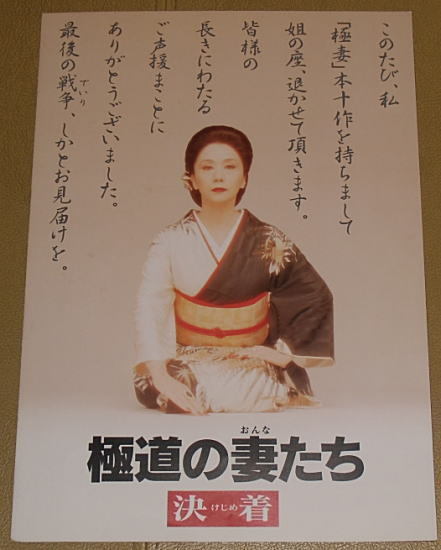 このたび、私
「極妻」本十作を持ちまして
姐の座、退かせて頂きます。
皆様の
長きにわたる
ご声援まことに
ありがとうございました。
最後の戦争、しかとお見届けを。
でいり
おんな
極道の妻たち
決着
けじめ